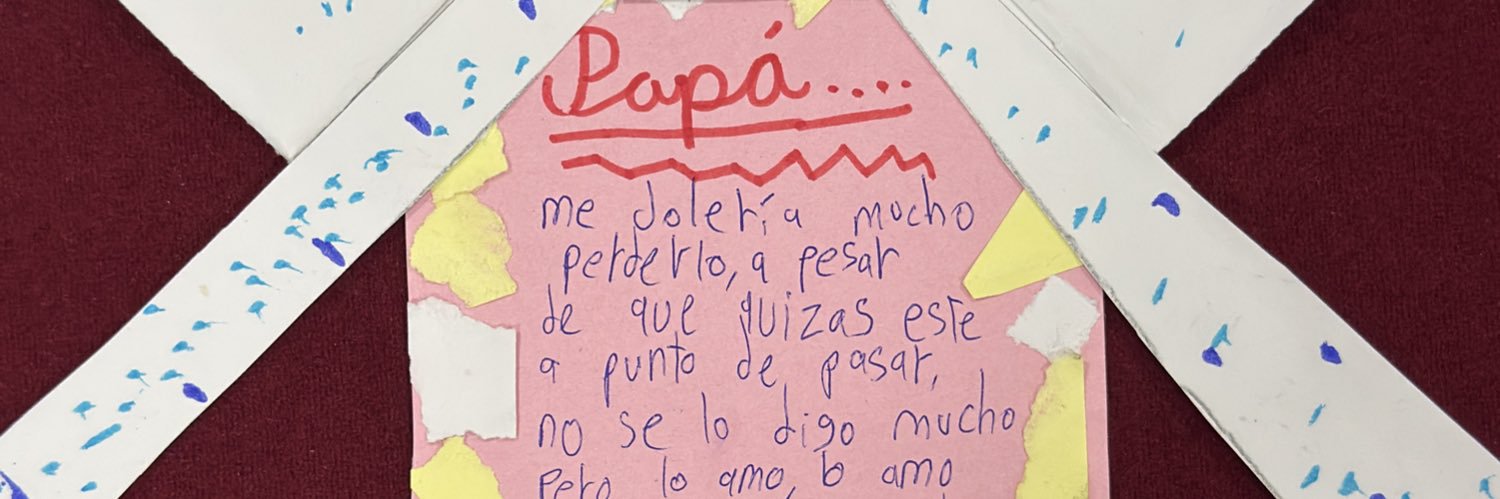 Papá....
me dolería mucho
perderlo, a pesar
de que quizas este
a punto de pasar,
no se lo digo mucho
pero lo amo, lo amo